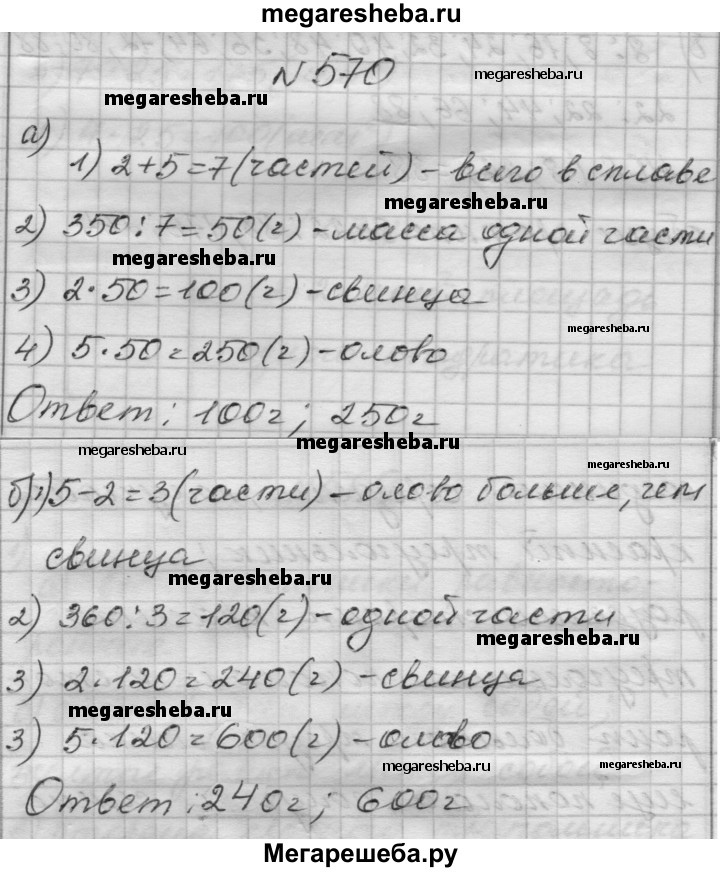 megaresheba.ru
N 570
megaresheba.ru
megaresheba.ru
а)
1) 2+5=7 (частей) - всего в сплаве
megaresheba.ru
2) 350:7=50(г) - масса одной части
megaresheba.ru
3) 2·50=100(г) - свинца
megaresheba.ru
4) 5·50=250(г) - олово
Ответ: 100г; 250г
megaresheba.ru
megaresheba.ru
megaresheba.ru
б) 1) 5-2=3 (части) - олово больше, чем
свинца
megaresheba.ru
2) 360:3=120(г) - одной части
megaresheba.ru
3) 2·120=240(г) - свинца
megaresheba.ru
3) 5·120=600(г) - олово
megaresheba.ru
megaresheba.ru
Ответ: 240г; 600г
Мегарешеба.ру